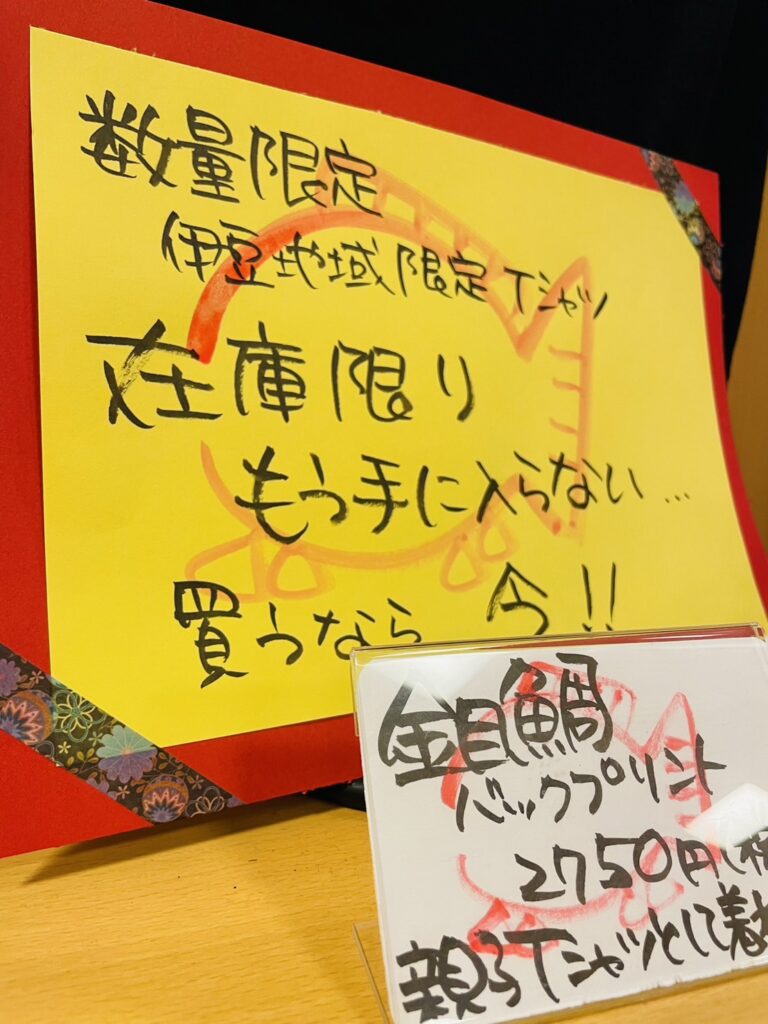 数量限定
伊豆地域限定Tシャツ
在庫限り
もう手に入らない…
買うなら 今!!
金目鯛
バックプリント
2750円(税
親子Tシャツとして着